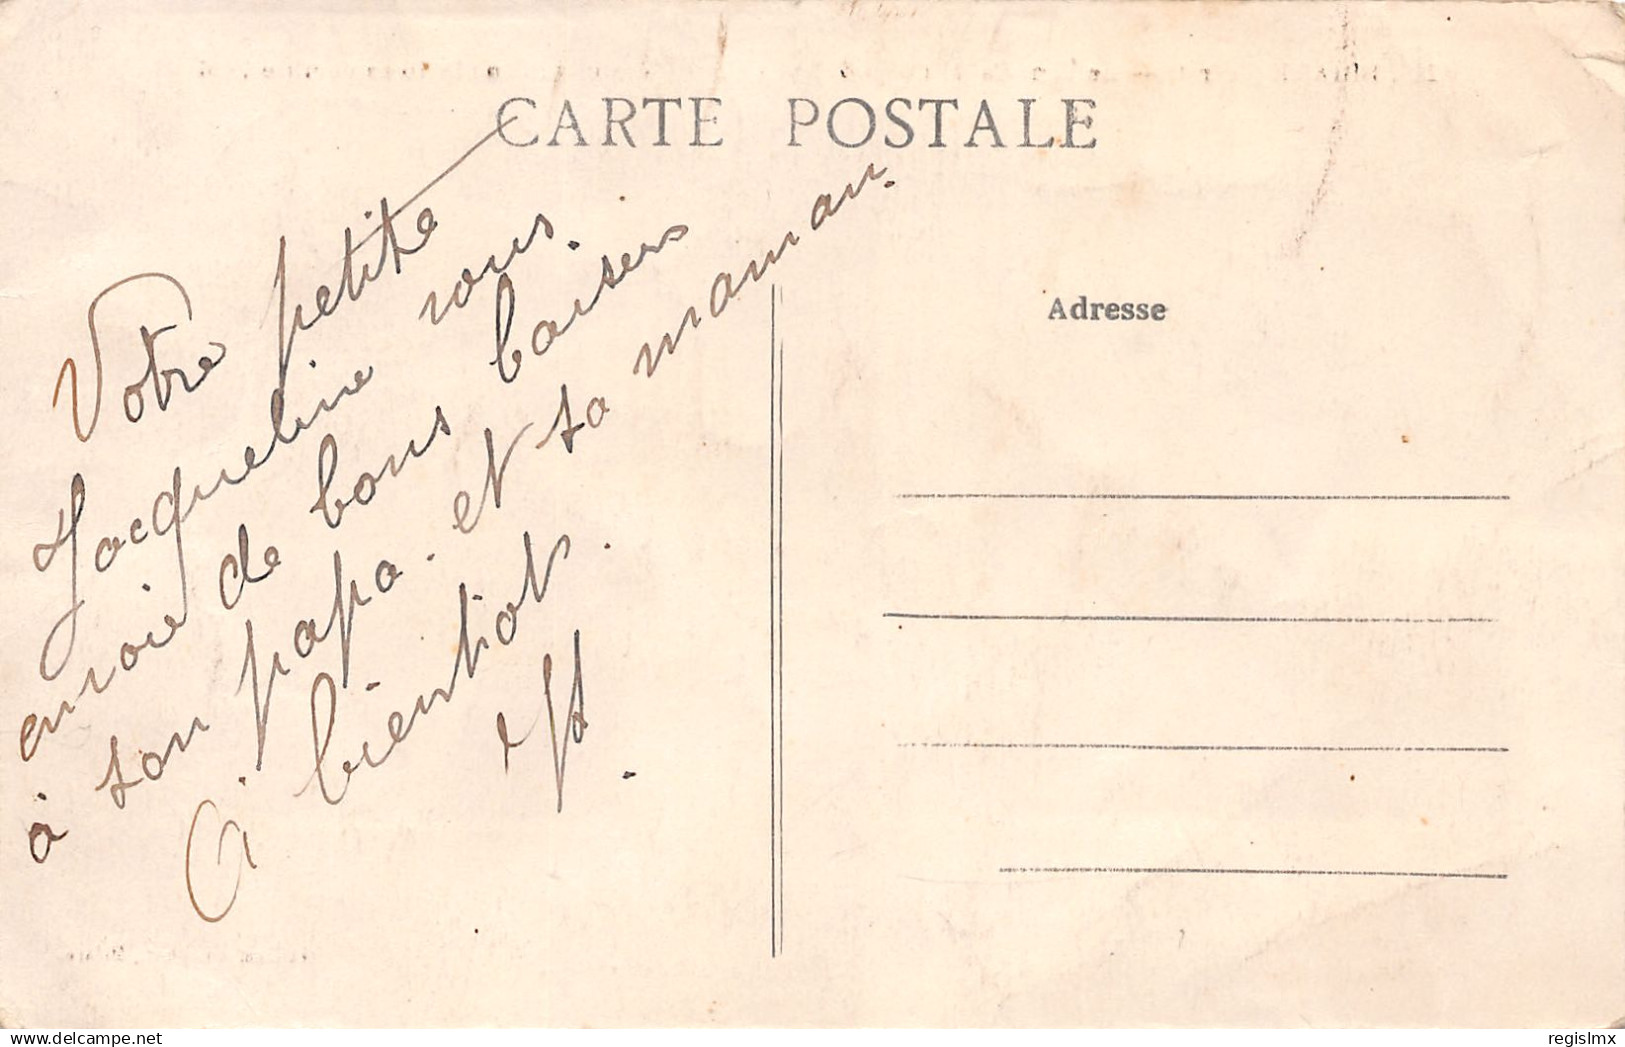 CARTE POSTALE
Votre petite
Jacqueline vous
envoie de bons baisers
à son papa. et sa maman.
A bientôt.
Adresse
delcampe.net
regislmx